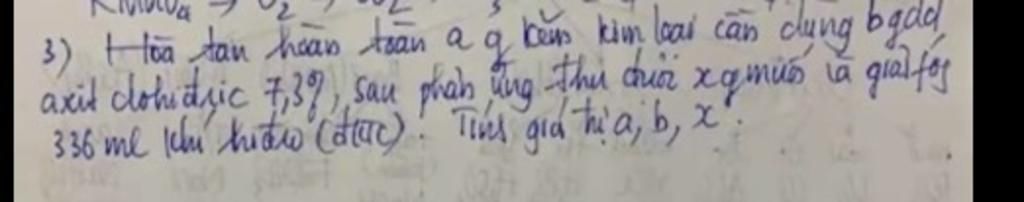 3) Hoà tan hoàn toàn a g kẽm kim loại cần dùng b g dd
axit clohiđric 7,3%, sau phản ứng thu được x g muối và giải fóg
336 ml khí hiđro (đktc). Tính giá trị a, b, x.